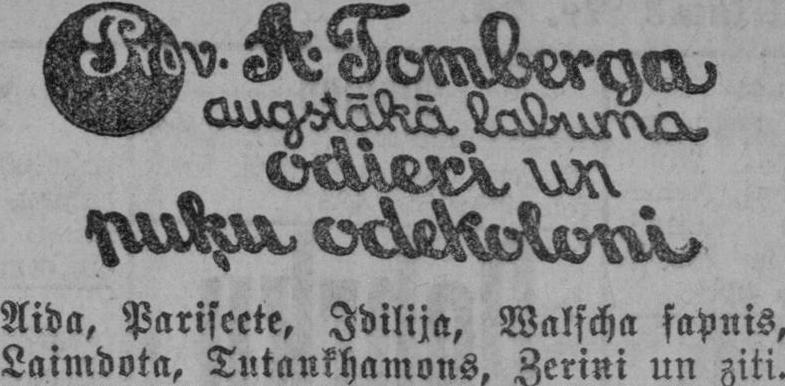 Prov. A. Tomberga
augstākā labuma
odieri un
puķu odekoloni
Aida, Pariſeete, Idilija, Walſcha ſapnis,
Laimdota, Tutankhamons, Zerini un ziti.